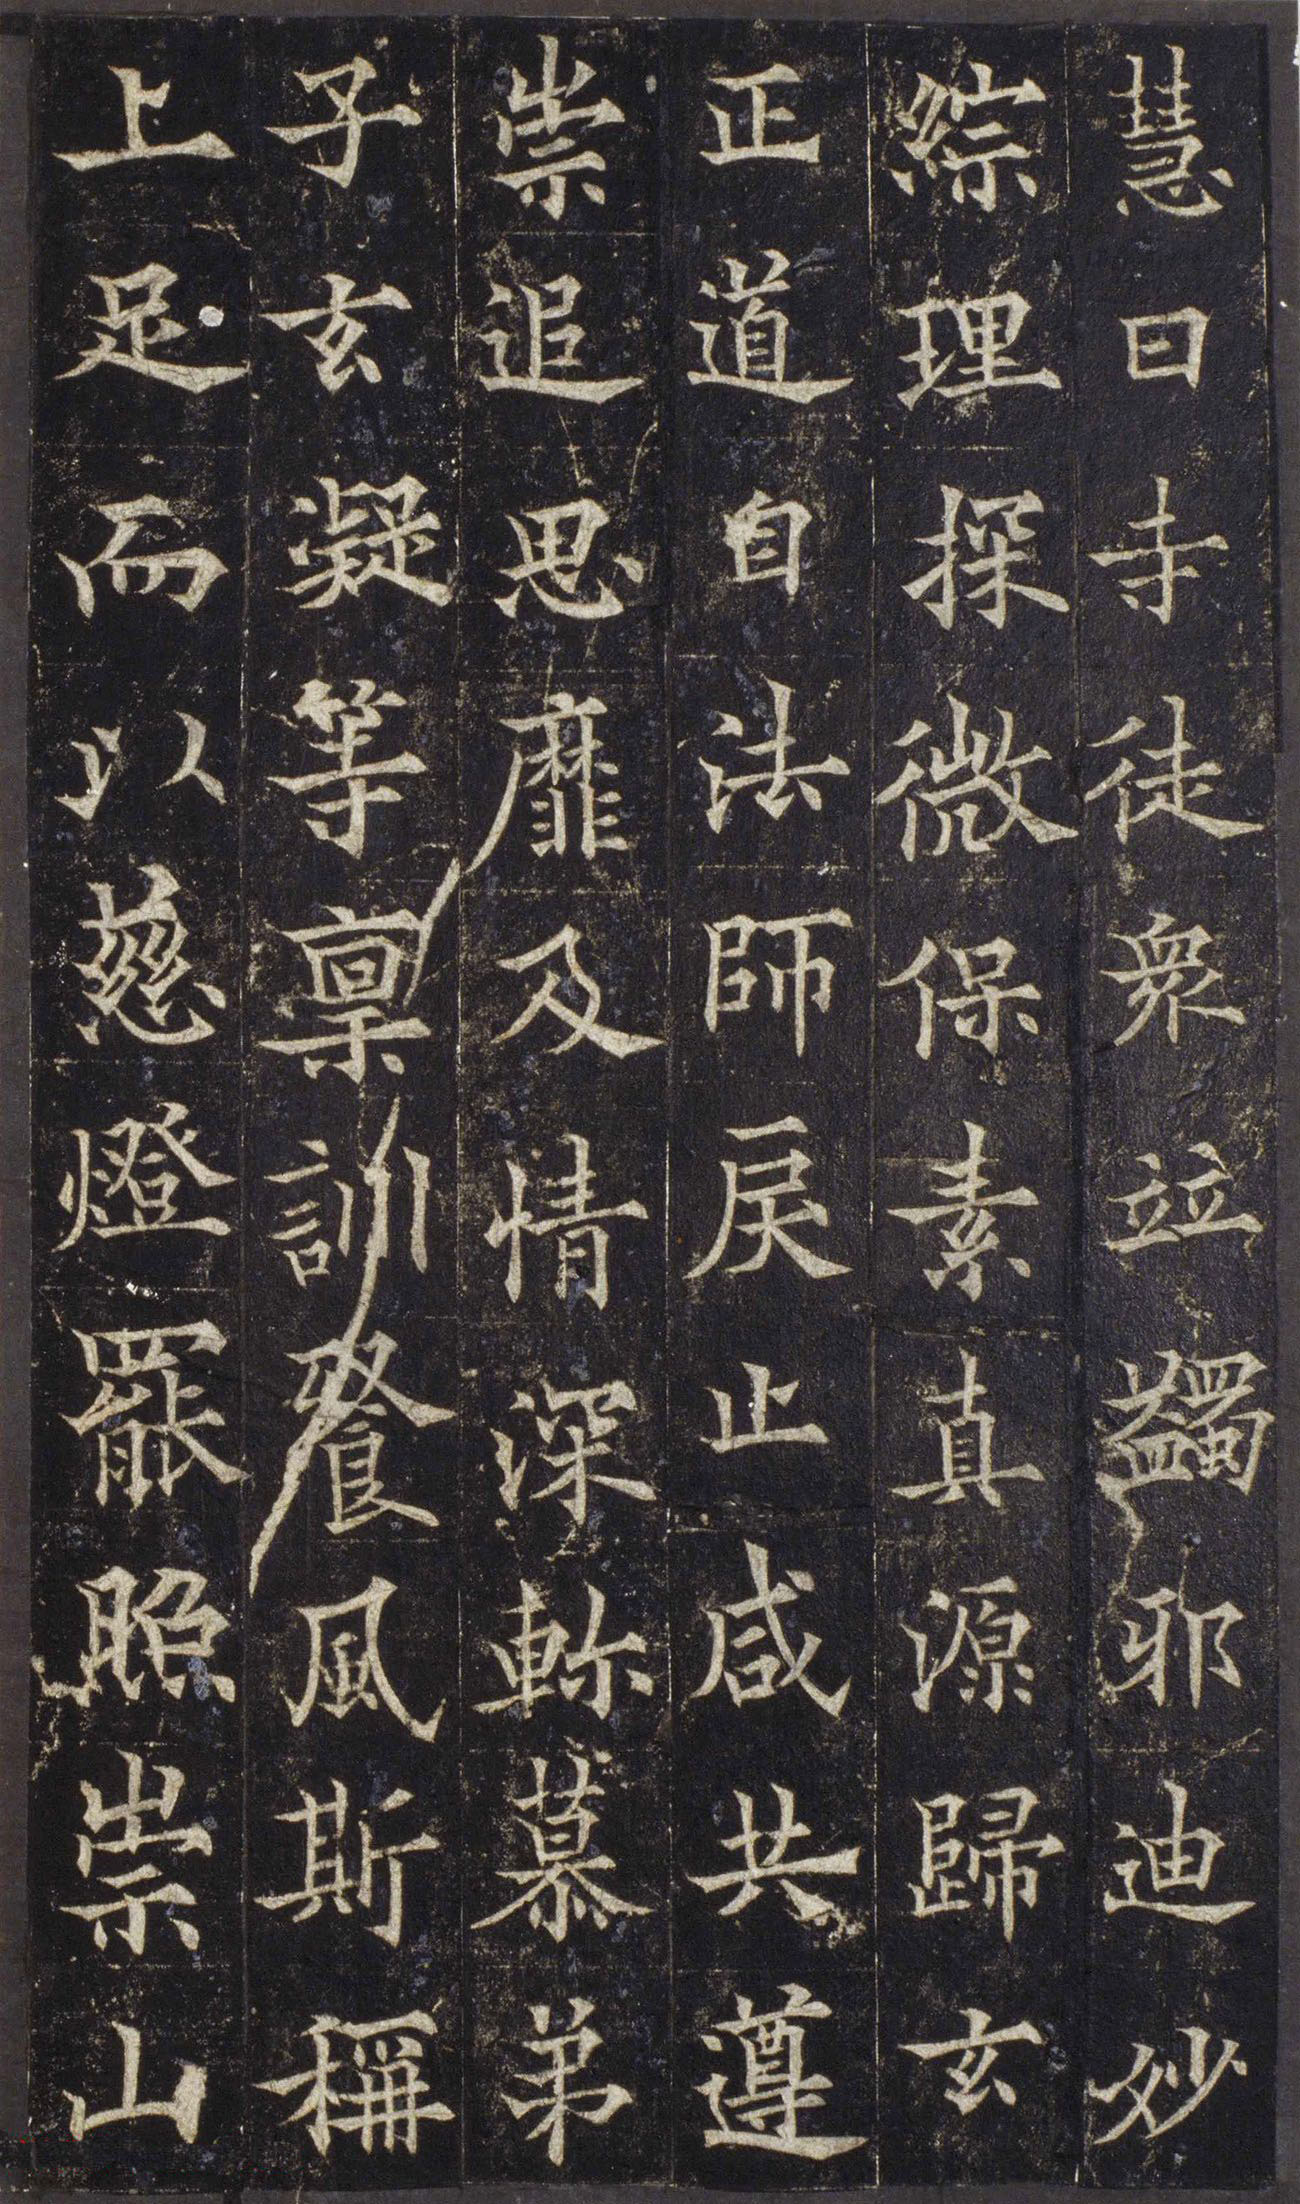 慧日寺徒衆竝蠲邪迪妙
綜理探微保素真源歸玄
正道自法師戾止咸共遵
崇追思靡及情深軫慕弟
子玄凝等稟訓餐風斯稱
上足而以慈燈罷照崇山